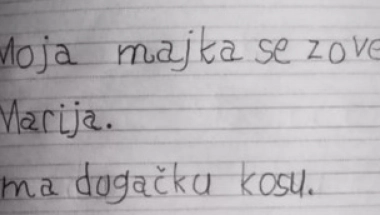 Moja majka se zove
Marija.
ma dogačku kosu.